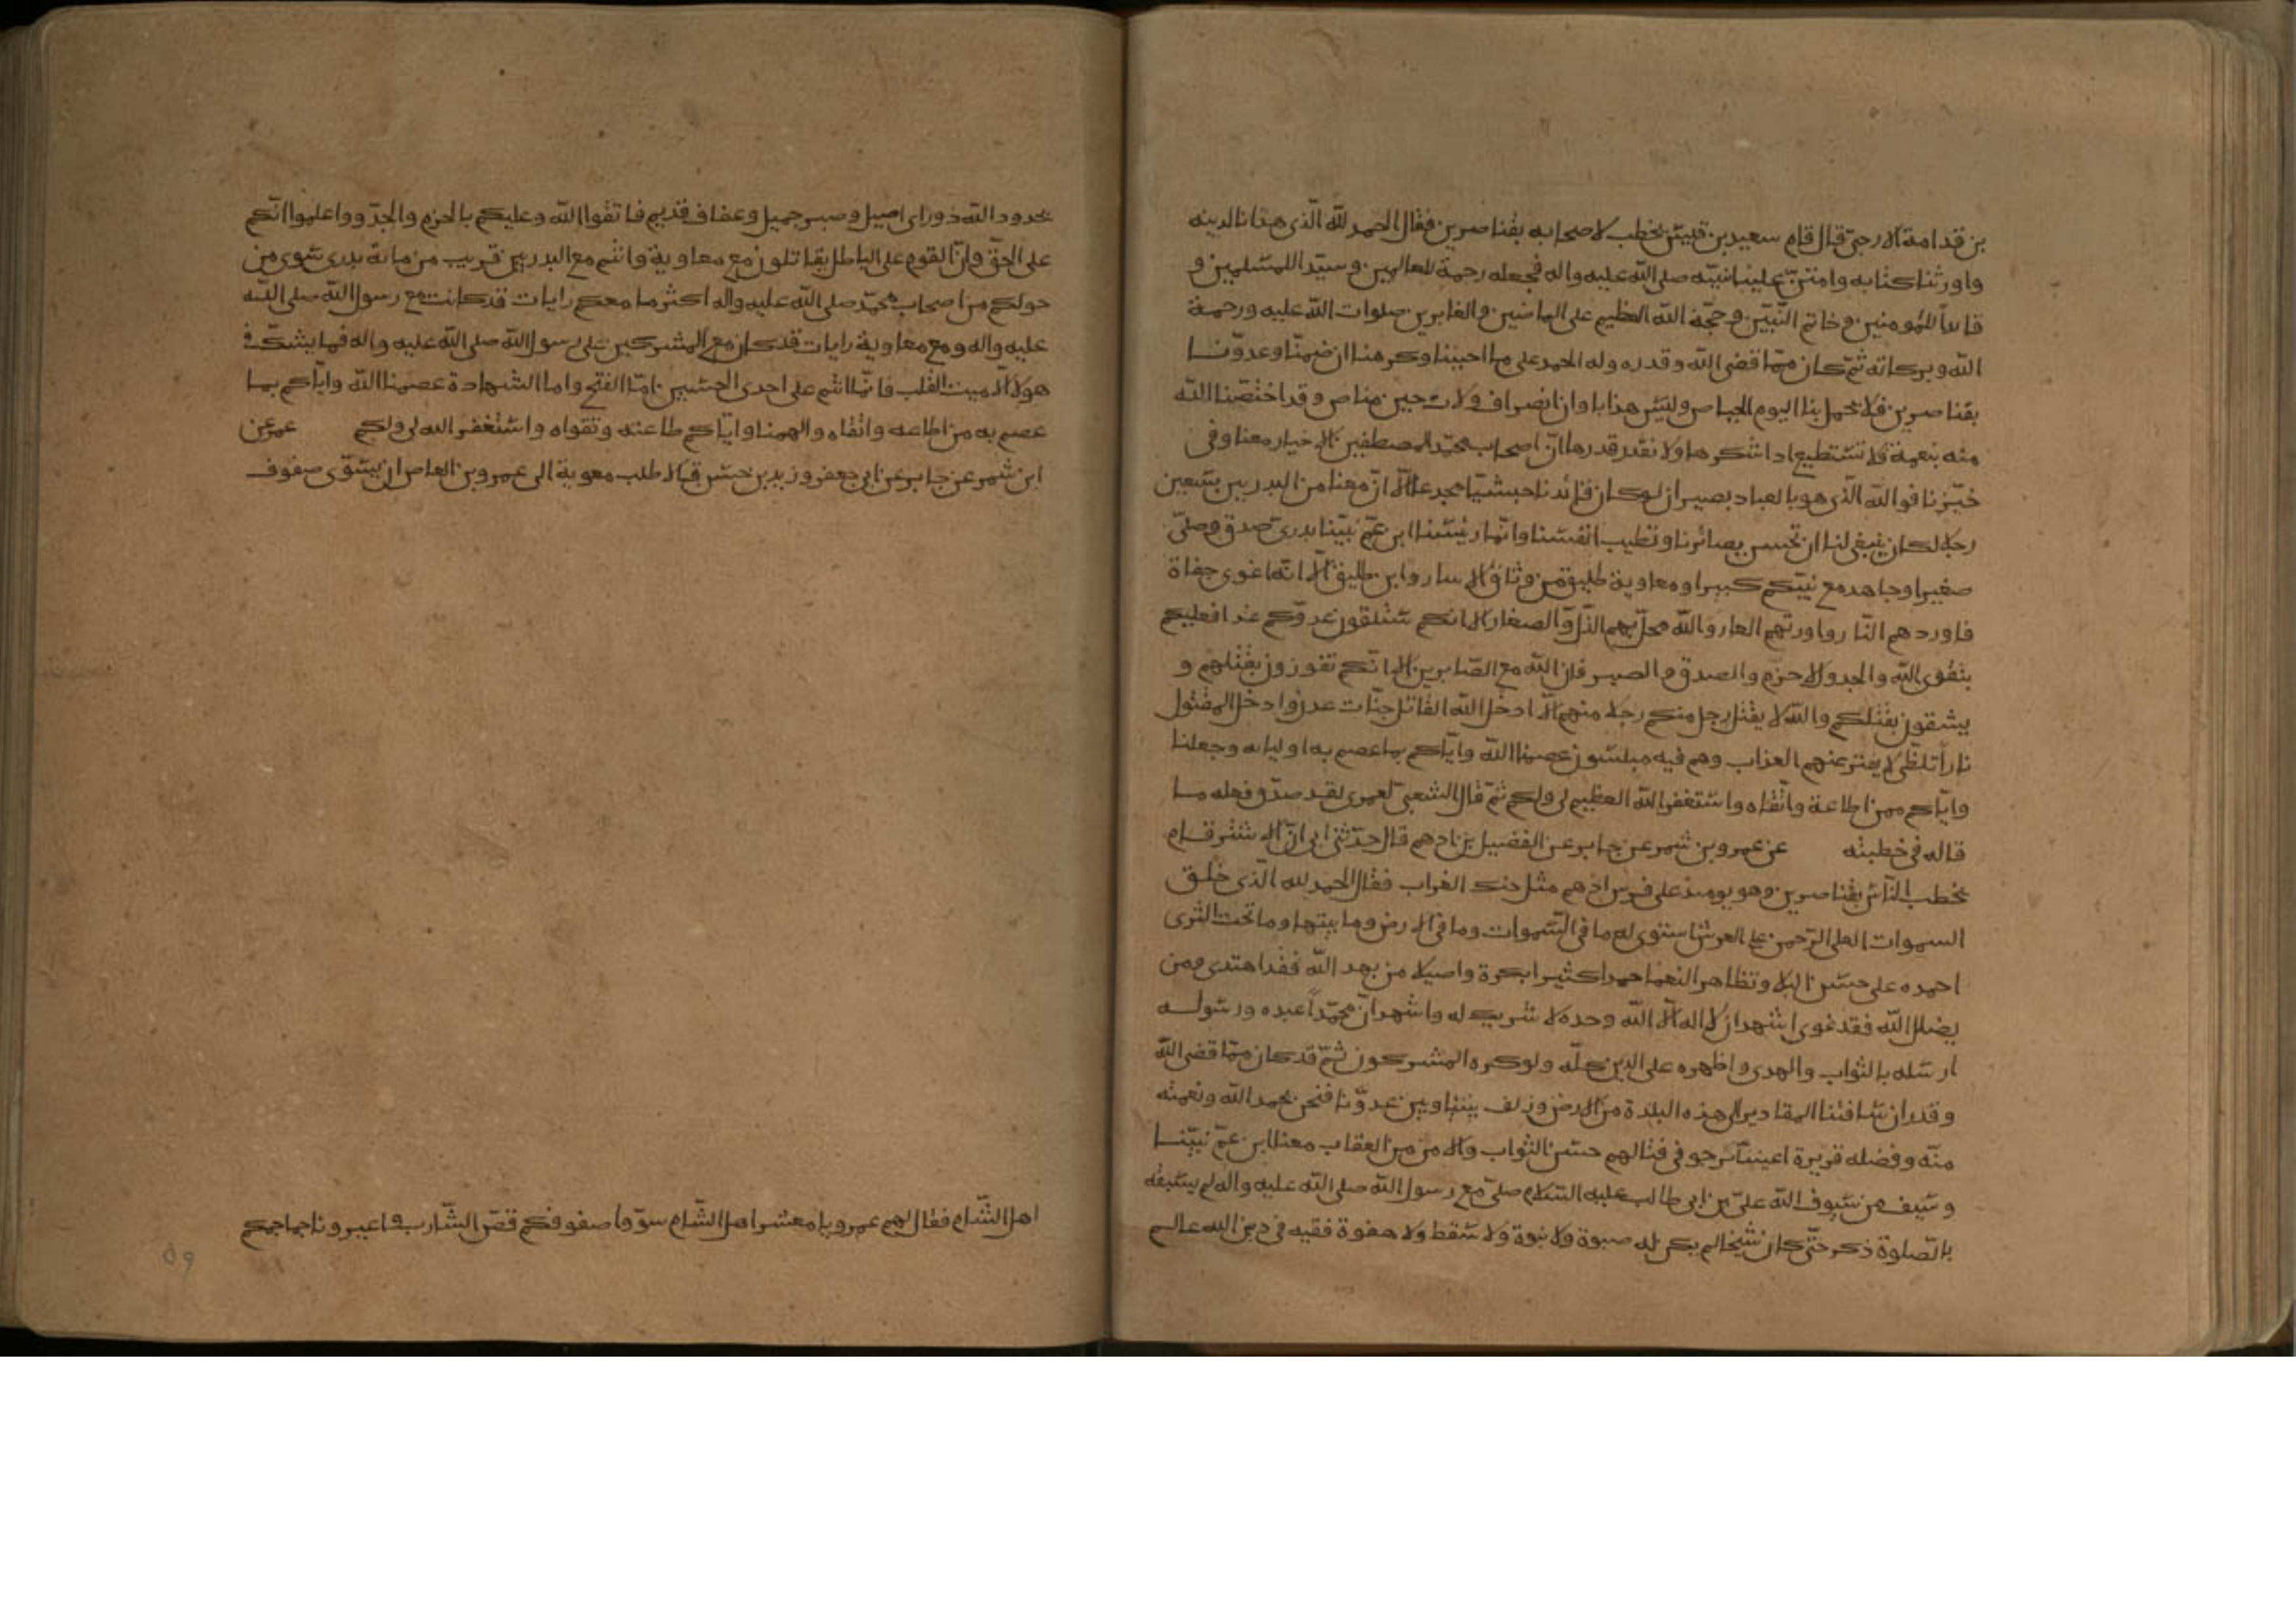 بن قدامة الارحبى قال قام سعيد بن قيس يخطب لاصحابه بقناصرين فقال الحمد لله الّذى هدانا لدينه
واورثنا كتابه وامتنّ علينا بنبيّه صلى الله عليه واله فجعله رحمة للعالمين وسيّدا للمسلمين و
قائداً للمؤمنين وخاتم النّبيّن وحجّة الله العظيم على الماضين والغابرين صلوات الله عليه ورحمة
الله وبركاته ثمّ كان ممّا قضى الله وقدره وله الحمد على ما احببنا وكرهنا ان ضمنّا وعدوّنا
بقناصرين فلا يحمل بنا اليوم الحياص وليس هذا باوان انصراف ولات حين مناص وقد اختصّنا الله
منه بنعمة فلا نستطيع اداشكرها ولا نقدر قدرها انّ اصحاب محمّد المصطفين الاخيار معنا وفى
حيّزنا فوالله الّذى هو بالعباد بصير ان لو كان قائدنا حبشيّا مجدعا الّا انّ معنا من البدريين سبعين
رجلا لكان ينبغى لنا ان تحسن بصائرنا وتطيب انفسنا وانّما رئيسنا ابن عمّ نبيّنا بدرى صدق وصلّى
صغيرا وجاهد مع نبيّكم كبيرا ومعاوية طليق من وثاق الاسار وابن طليق الا انّه اغوى جفاة
فاوردهم النّار واورثهم العار والله محلّ بهم الذّلّ والصغار الا انكم ستلقون عدوّكم غدا فعليكم
بتقوى الله والجد والاحزم والصدق والصبر فان الله مع الصّابرين الا انّكم تفوزون بقتلهم و
يشقون بقتلكم والله لا يقتل رجل منكم رجلا منهم الّا ادخل الله القاتل جنّات عدن وادخل المقتول
ناراً تلظّى لا يفتر عنهم العذاب وهم فيه مبلسون عصمنا الله وايّاكم بما عصم به اوليائه وجعلنا
وايّاكم ممن اطاعة واتّقاه واستغفر الله العظيم لى ولكم ثمّ قال الشعبى لعمرى لقد صدّق فعله ما
قاله فى خطبته عن عمرو بن شمر عن جابر عن الفضيل بن ادهم قال حدّثنى ابى انّ الاشتر قام
يخطب النّاس بقناصرين وهو يومئذ على فرس ادهم مثل حنك الغراب فقال الحمد لله الّذى خلق
السموات العلى الرّحمن على العرش استوى له ما فى السّموات وما فى الارض وما بينهما وما تحت الثرى
احمده على حسن البلا وتظاهر النعما حمدا كثيرا بكرة واصيلا من يهد الله فقد اهتدى ومن
يضلل الله فقد غوى اشهد ان لا اله الّا الله وحده لا شريك له واشهد انّ محمّداً عبده ورسوله
ارسله بالثواب والهدى واظهره على الدين كلّه ولو كره المشركون ثمّ قد كان ممّا قضى الله
وقدر ان ساقتنا المقادير الى هذه البلدة من الارض ولف بيننا وبين عدوّنا فنحن بحمد الله ونعمته
ومنّه وفضله قريرة اعيننا نرجو فى قتالهم حسن الثواب والامن من العقاب معنا ابن عمّ نبيّنا
وسيف من سيوف الله علىّ بن ابى طالب عليه السّلام صلىّ مع رسول الله صلى الله عليه واله لم يسبقه
بالصّلوة ذكر حتّى كان شيخا لم يكن له صبوة ولا نبوة ولا سقط ولا هفوة فقيه فى دين الله عالم
بحدود الله ذو راى اصيل وصبر جميل وعفاف قديم فاتقوا الله وعليكم بالحزم والجدّ وواعلموا انّكم
على الحقّ وانّ القوم على الباطل يقاتلون مع معاوية وانتم مع البدريين قريب من مائة بدرى سوى من
حولكم من اصحاب محمّد صلى الله عليه واله اكثر ما معكم رايات قد كانت مع رسول الله صلى الله
عليه واله ومع معاوية رايات قد كان مع المشركين على رسول الله صلى الله عليه واله فما يشكّ فى
هولا الّا ميت القلب فانّما انتم على احدى الحسنيين امّا الفتح واما الشهادة عصمنا الله وايّاكم بما
عصم به من اطاعه واتقاه والهمنا وايّاكم طاعته وتقواه واستغفر الله لى ولكم عمر عن
ابن شمر عن جابر عن ابى جعفر وزيد بن حسن قالا طلب معوية الى عمرو بن العاص ان يسوّى صفوف
اهل الشّام فقال لهم عمرو يا معشر اهل الشّام سوّوا صفوفكم قصّ الشّارب واعيرونا جماجمكم
٥٩